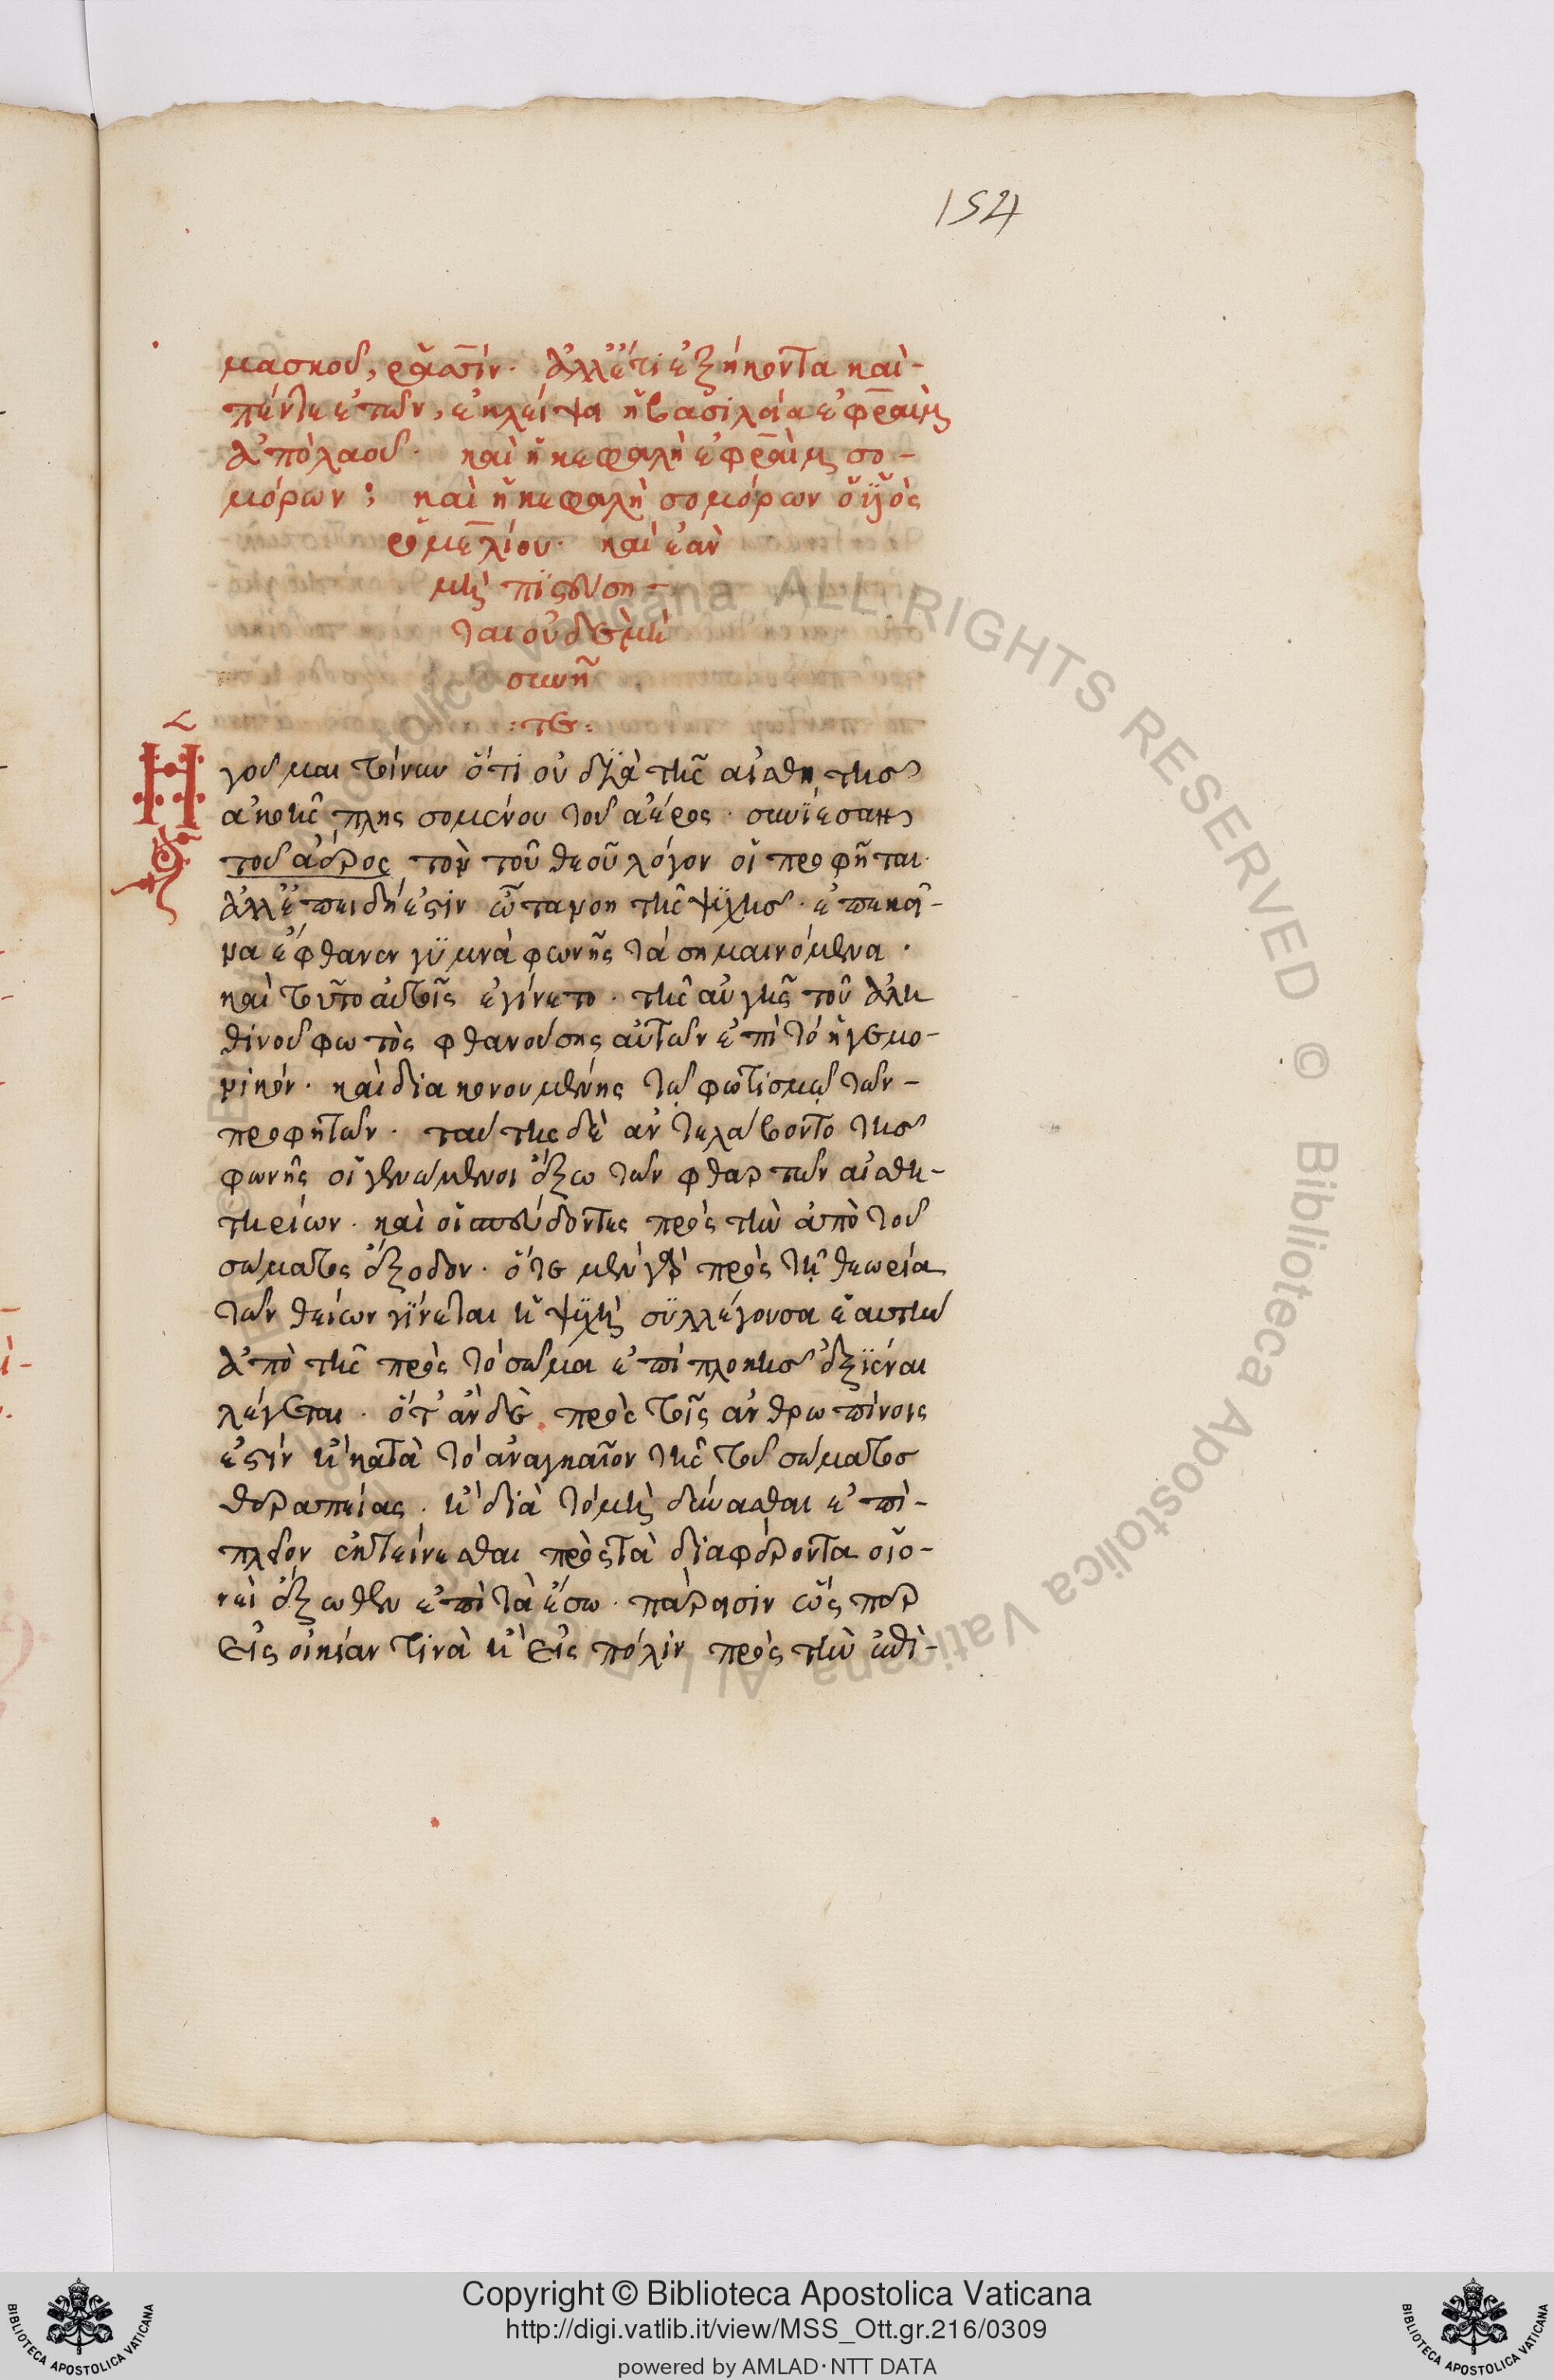 154
μασκοῦ, ῥασίν· ἀλλ' ἔτι ἑξήκοντα καὶ-
πέντε ἐτῶν, ἐκλείψει ἡ βασιλεία ἐφραὶμ
ἀπὸ λαοῦ· καὶ ἡ κεφαλὴ ἐφραὶμ σο-
μόρων: καὶ ἡ κεφαλὴ σομόρων ὁ υἱὸς
ῥομελίου· καὶ ἐὰν
μὴ πιστεύση-
ται οὐδὲ μὴ
συνῆ
:τε:
Ηγοῦμαι τοίνυν ὅτι οὐ διὰ τῆς αἰσθητῆς
ἀκοῆς πλησσομένου τοῦ ἀέρος· συνίεσαν
τοῦ ἀέρος τὸν τοῦ θεοῦ λόγον οἱ προφῆται·
ἀλλ' ἐπειδή ἐστιν ὦτα νοη τῆς ψυχῆς· ἐπ' ἐκεῖ-
να ἔφθανεν γυμνὰ φωνῆς τὰ σημαινόμενα·
καὶ τοῦτο αὐτοῖς ἐγίνετο· τῆς αὐγῆς τοῦ ἀλη
θινοῦ φωτὸς φθανούσης αὐτῶν ἐπὶ τὸ ἡγεμο-
νικόν· καὶ διακονουμένης τῷ φωτισμῷ τῶν-
προφητῶν· ταύτης δὲ ἀντελάβοντο τῆς
φωνῆς οἱ γενώμενοι ἔξω τῶν φθαρτῶν αἰσθη-
τηρίων· καὶ οἱ σπεύδοντες πρὸς τὴν ἀπὸ τοῦ
σώματος ἔξοδον· ὅτε μὲν γὰρ πρὸς τῇ θεωρία
τῶν θείων γίνεται ἡ ψυχὴ συλλέγουσα ἑαυτὴν
ἀπὸ τῆς πρὸς τὸ σῶμα ἐπιπλοκῆς ἐξϊέναι
λέγεται· ὅτ' ἂν δὲ πρὸς τοῖς ἀνθρωπίνοις
ἐστὶν ἢ κατὰ τὸ ἀναγκαῖον τῆς τοῦ σώματος
θεραπείας· ἢ διὰ τὸ μὴ δύνασθαι ἐπὶ-
πλέον ἐντείνεσθαι πρὸς τὰ διαφέροντα οἱο-
νεὶ ἔξωθεν ἐπὶ τὰ ἔσω· πάρεισιν ὥς περ
εἰς οἰκίαν τινὰ ἢ εἰς πόλιν πρὸς τὴν ἐπὶ-
Copyright © Biblioteca Apostolica Vaticana
http://digi.vatlib.it/view/MSS_Ott.gr.216/0309
powered by AMLAD·NTT DATA